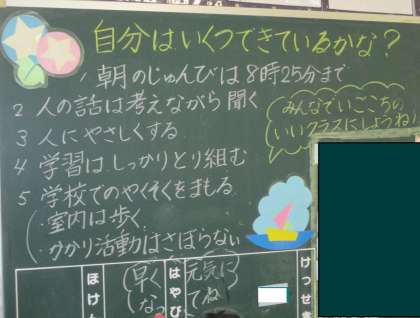 自分はいくつできているかな？
1 朝のじゅんびは8時25分まで
2 人の話は考えながら聞く
3 人にやさしくする
4 学習はしっかりとり組む
5 学校でのやくそくをまもる
・室内は歩く
・かかり活動はさぼらない
みんなでいごこちの
いいクラスにしようね！
ほけん
早く
なっ
はやび
元気に
てね
けっせき